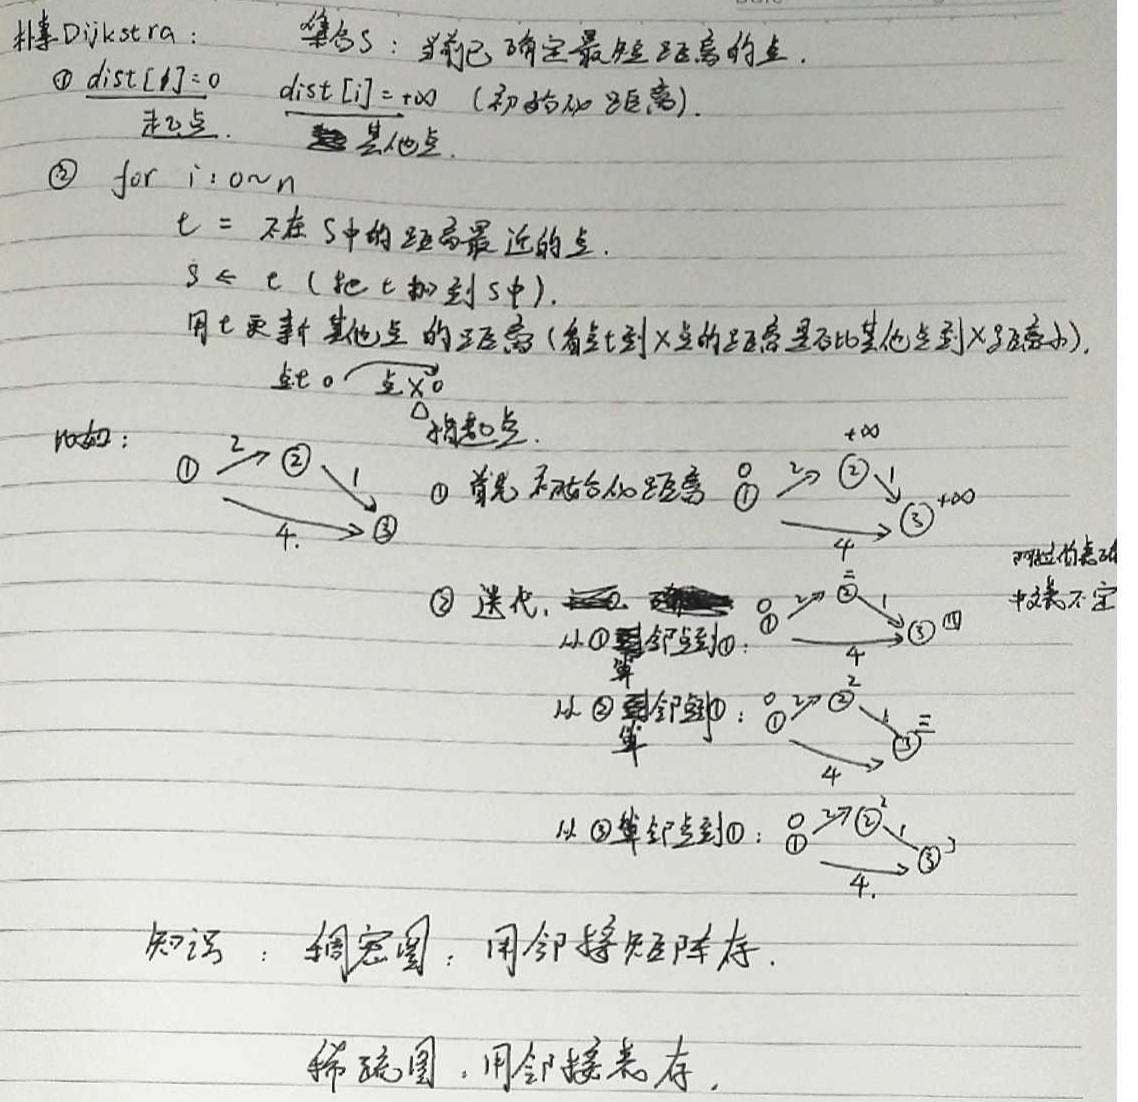 朴素Dijkstra: 集合S:当前已确定最短距离的点.
① dist[1]=0 dist[i]=+∞ (初始化距离).
起点. 其他点.
② for i:0~n
t = 不在S中的距离最近的点.
S ← t (把t加到S中).
用t更新其他点的距离(看点t到X点的距离是否比其他点到X距离小).
点t 点X
指起点.
比如: ① 2 ② 1 ③ 4.
① 首先初始化距离 0 ① 2 ② +∞ 1 ③ +∞ 4
阿拉伯表确
中文表不定
② 迭代. 0 ① 2 ② 二 1 ③ 四 4
从①算邻点到①:
从②算邻点到①: 0 ① 2 ② 2 1 ③ 三 4
从③算邻点到①: 0 ① 2 ② 2 1 ③ 3 4.
知识: 稠密图:用邻接矩阵存.
稀疏图.用邻接表存.